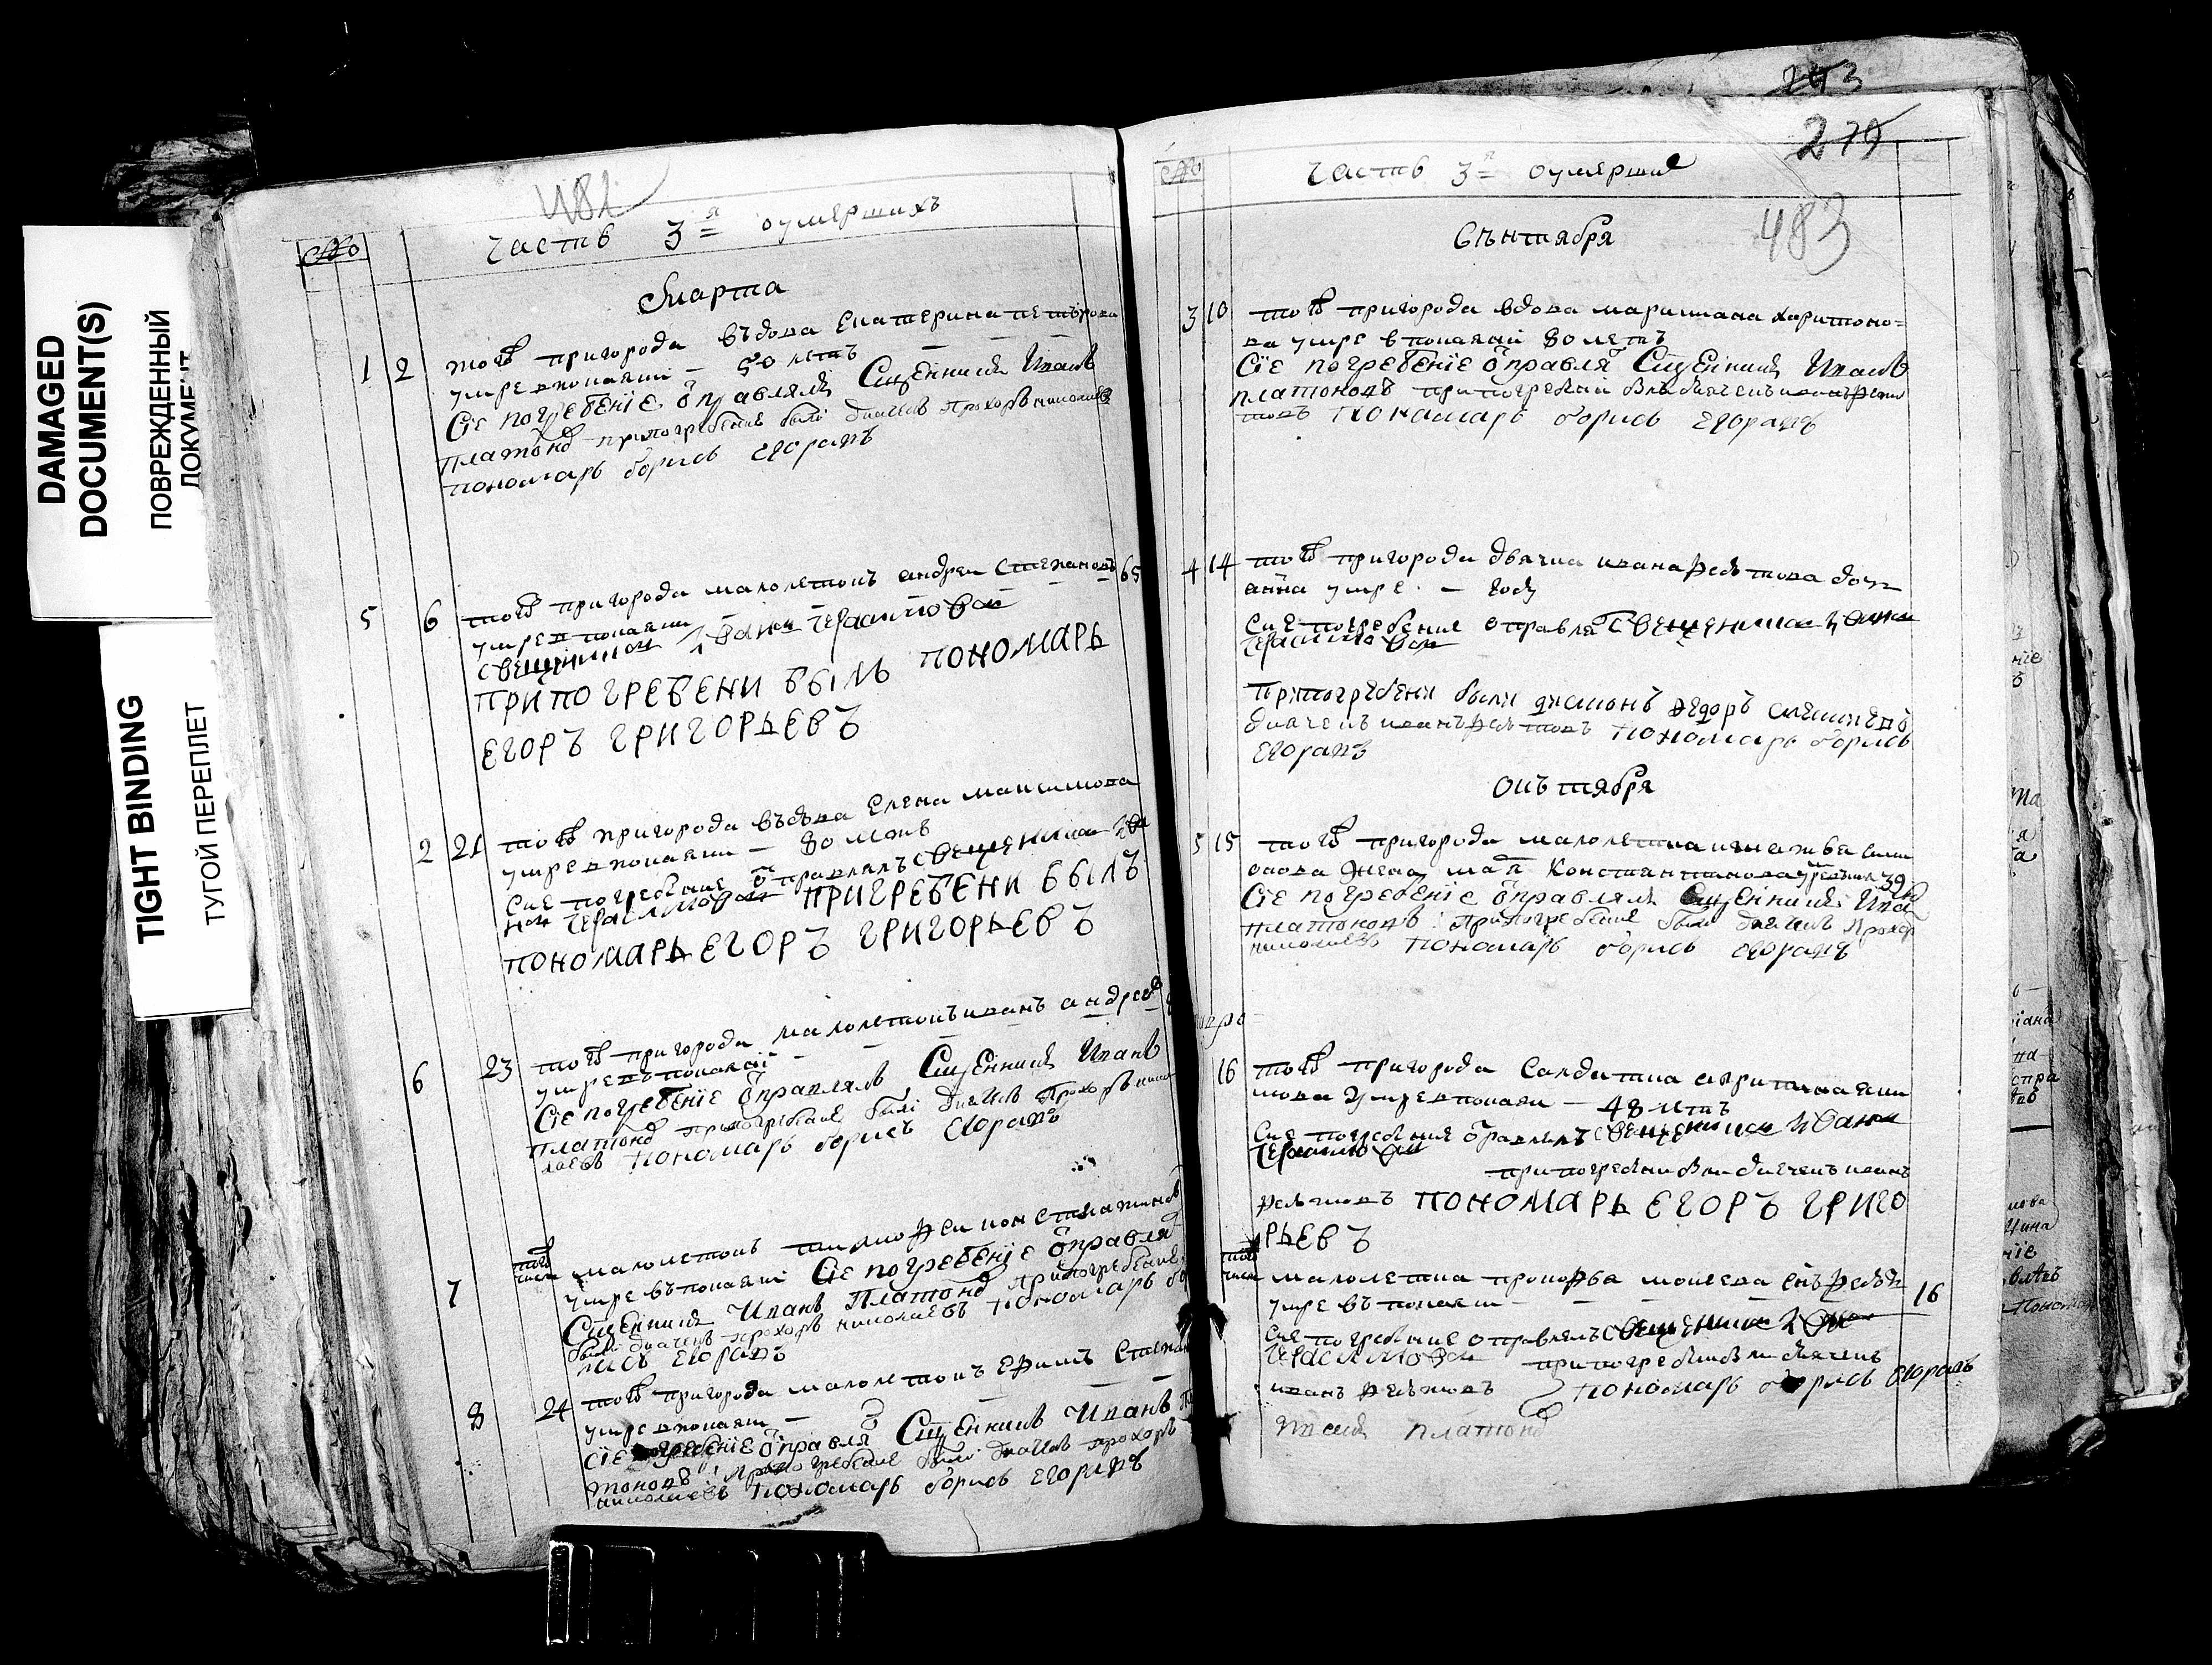 DAMAGED
DOCUMENT(S)
ПОВРЕЖДЕННЫЙ
ДОКУМЕНТ
TIGHT BINDING
ТУГОЙ ПЕРЕПЛЕТ
482
№ часть 3я оумершихъ
Марта
1 2 тогожъ пригорода въдова Екатерина петърова
умре впокаяни – 50 летъ
Сїе погребенїе ѿправлялъ Сщенникъ Иванъ
Платоновъ припогребенїе были дьячекъ Прохоръ николаевъ
пономарь борисъ Егоровъ
5 6 тогожъ пригорода малолетокъ андреи Степановъ 65
умре впокаяни
священникъ Иванъ Герасимовъ
ПРИПОГРЕБЕНИ БЫЛЬ ПОНОМАРЬ
ЕГОРЪ ГРИГОРЬЕВЪ
2 21 тогожъ пригорода въдова Елена максимова
умре впокаяни – 80 летъ
Сие погребение ѿправлялъ священникъ Ива
нъ Герасимовъ ПРИГРЕБЕНИ БЫЛЪ
ПОНОМАРЬ ЕГОРЪ ГРИГОРЬЕВЪ
6 23 тогожъ пригорода малолетокъ иванъ андреевъ
умре въпокаяніи
Сїе погребенїе ѿправлялъ Сщенникъ Иванъ
Платоновъ припогребение были дьячекъ Прохоръ нико
лаевъ пономарь борисъ Егоровъ
7 тогожъ числа малолетокъ тимофеи константиновъ
умре въпокаяни Сїе погребенїе ѿправлялъ
Сщенникъ Иванъ Платоновъ припогребение
были дьячекъ прохоръ николаевъ пономарь бо
рисъ Егоровъ
8 24 тогожъ пригорода малолетокъ Ефимъ Степа
умре впокаяни – 3
Сїе погребенїе ѿправля Сщенникъ Иванъ Пла
тоновъ припогребение были дьячекъ прохоръ
николаевъ пономарь борисъ Егоровъ
243
279
№ часть 3я оумершие
483
Сентября
3 10 тогожъ пригорода вдова мариммана харитоно=
ва умре впокаянии 80 летъ
Сїе погребенїе ѿправля Сщенникъ Иванъ
платоновъ припогребении были дьячекъ иванъ
пономарь борисъ Егоровъ
4 14 тогожъ пригорода дьячка ивана дочь
анна умре – году
Сие погребение ѿправля священникъ Иванъ
Герасимовъ
Припогребени были диаконъ федоръ
дьячекъ иванъ пономарь борисъ
Егоровъ
Октября
5 15 тогожъ пригорода малолетка
Константинова 39
Сїе погребенїе ѿправлялъ Сщенникъ Иванъ
платоновъ припогребение были дьячекъ Прохор
николаевъ пономарь борисъ Егоровъ
16 тогожъ пригорода Салдатка
мова умре впокаяни – 48 летъ
Сие погребение ѿправлялъ священникъ Иванъ
Герасимовъ
припогребени были дьячекъ иванъ
ПОНОМАРЬ ЕГОРЪ ГРИГО
РЬЕВЪ
тогожъ числа малолетка прокофья моисеева сынъ 16
умре въпокаяни
Сие погребение ѿправлялъ священникъ Иванъ
Герасимовъ припогребени были дьячекъ
иванъ пономарь борисъ Егоровъ
платонов